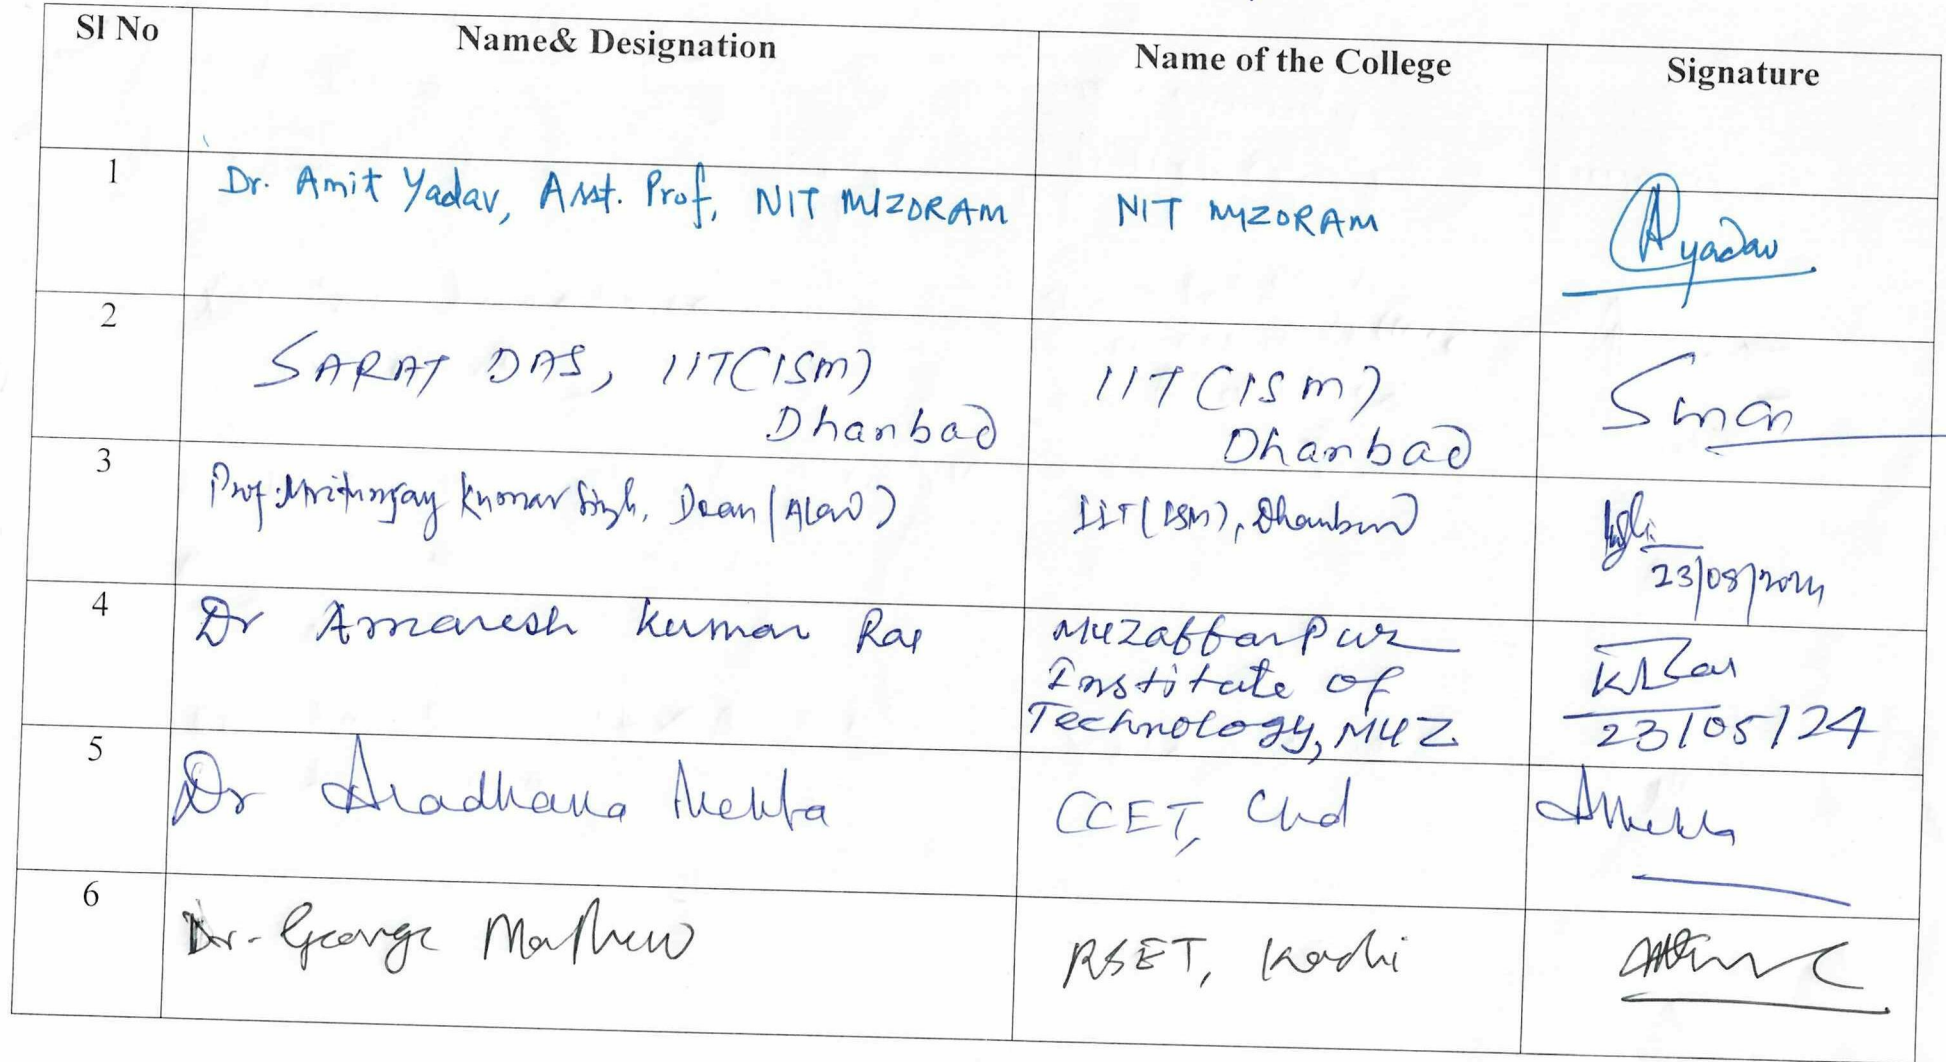 Sl No Name& Designation Name of the College Signature
1 Dr. Amit Yadav, Asst. Prof, NIT MIZORAM NIT MIZORAM Ayadav
2 SARAT DAS, IIT(ISM) IIT(ISM)
Dhanbad Dhanbad
3 Prof. Mritunjay Kumar Singh, Dean (A&O) IIT(ISM), Dhanbad
23/05/2024
4 Dr Amaresh Kumar Rai Muzaffarpur
Institute of
Technology, MUZ 23/05/24
5 Dr Aradhana Mehta CCET, Chd AMehta
6 Dr. George Mathew RSET, Kochi